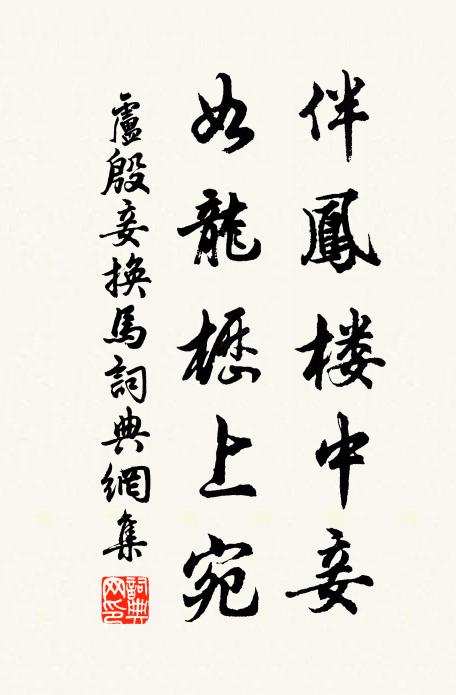 伴鳳楼中妾
如龍櫪上宛
盧殷妾換馬詞典網集
詞典網印